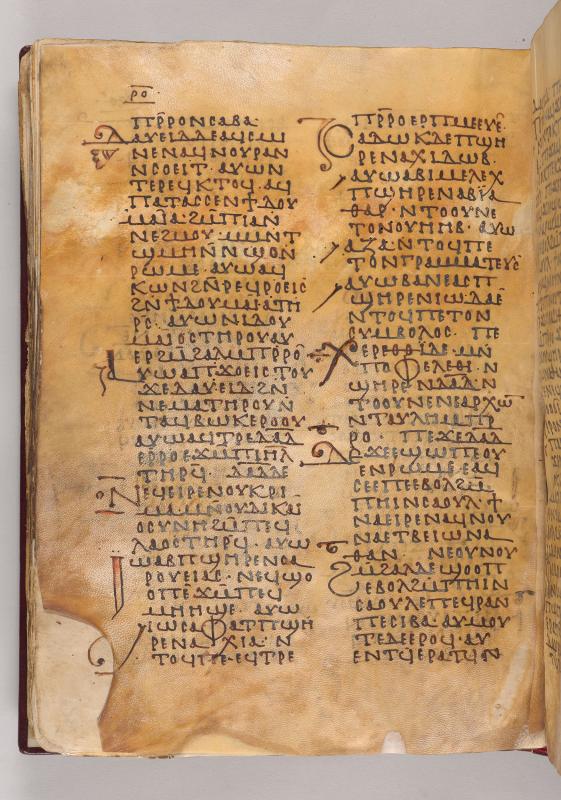 ⲣ̅ⲟ̅
ⲡⲣ̅ⲣⲟⲛⲥⲟⲩⲃⲁ·
ⲇⲁⲩⲉⲓⲇⲇⲉⲁϥⲥⲙⲓ
ⲛⲉⲛⲁϥⲛⲟⲩⲣⲁⲛ
ⲛⲥⲟⲉⲓⲧ· ⲁⲩⲱⲛ
ⲧⲉⲣⲉϥⲕⲧⲟϥ· ⲁϥ
ⲡⲁⲧⲁⲥⲥⲉⲛϯⲇⲟⲩ
ⲙⲁⲓⲁϩⲙⲡⲓⲁⲛ
ⲛⲉϩⲙⲟⲩ· ⲙⲙⲛⲧ
ϣⲙⲏⲛⲛϣⲟⲛ
ⲣⲱⲙⲉ· ⲁⲩⲱⲁϥ
ⲕⲱⲛϩⲛⲣⲉϥⲣⲟⲉⲓⲥ
ϩⲛϯⲇⲟⲩⲙⲁⲓⲁⲧⲏ
ⲣⲥ· ⲁⲩⲱⲛⲓⲇⲟⲩ
ⲙⲁⲓⲟⲥⲧⲏⲣⲟⲩⲁⲩ
ⲉⲣϩⲙϩⲁⲗⲙⲡⲣⲣⲟ
ⲁⲩⲱⲁⲡϫⲟⲉⲓⲥⲧⲟⲩ
ϫⲉⲇⲁⲩⲉⲓⲇϩⲛ
ⲛⲉⲙⲁⲧⲏⲣⲟⲩⲛ
ⲧⲁϥⲃⲱⲕⲉⲣⲟⲟⲩ
ⲁⲩⲱⲁϥⲧⲣⲉⲇⲁⲇ
ⲉⲣⲣⲟⲉϫⲙⲡⲓⲏⲗ
ⲧⲏⲣϥ· ⲇⲁⲇⲇⲉ
ⲛⲉϥⲉⲓⲣⲉⲛⲟⲩⲕⲣⲓ
ⲙⲁⲙⲛⲟⲩⲇⲓⲕⲁⲓ
ⲟⲥⲩⲛⲏϩⲙⲡⲉϥ
ⲗⲁⲟⲥⲧⲏⲣϥ· ⲁⲩⲱ
ⲓⲱⲁⲃⲡϣⲏⲣⲉⲛⲥⲁ
ⲣⲟⲩⲉⲓⲁⲥ· ⲛⲉϥϣⲟ
ⲟⲡⲡⲉϩⲙⲡⲉϥ
ⲙⲏⲏϣⲉ· ⲁⲩⲱ
ⲓⲱⲥⲁⲫⲁⲧⲡϣⲏ
ⲣⲉⲛⲁⲭⲓⲁ· ⲛ
ⲧⲟϥⲡⲉⲉϥⲧⲣⲉ
ⲡⲣ̅ⲣⲟⲉⲣⲡⲙⲉⲉⲩⲉ·
ⲥⲁⲇⲱⲕⲇⲉⲡϣⲏ
ⲣⲉⲛⲁⲭⲓⲇⲱⲃ·
ⲁⲩⲱⲁⲃⲓⲙⲉⲗⲉⲭ
ⲡϣⲏⲣⲉⲛⲁⲃⲓⲁ
ⲑⲁⲣ· ⲛⲧⲟⲟⲩⲛⲉ
ⲧⲟⲛⲟⲩⲏⲏⲃ· ⲁⲩⲱ
ⲁⲍⲁ· ⲛⲧⲟϥⲡⲉ
ⲧⲟⲛⲅⲣⲁⲙⲙⲁⲧⲉⲩⲥ
ⲁⲩⲱⲃⲁⲛⲉⲁⲥⲡ
ϣⲏⲣⲉⲛⲓⲱⲇⲁⲉ
ⲛⲧⲟϥⲡⲉⲧⲟⲛ
ⲥⲩⲙⲃⲟⲗⲟⲥ· ⲡⲉ
ⲭⲉⲣⲉⲑⲣⲓⲇⲉⲙⲛ
ⲡⲟⲫⲉⲗⲉⲑⲓ· ⲛ
ϣⲏⲣⲉⲛⲇⲁⲇ· ⲛ
ⲧⲟⲟⲩⲛⲉⲛⲉⲁⲣⲭⲱ̅
ⲛⲧⲁⲩⲗⲏⲙⲡⲣ
ⲣⲟ· ⲡⲉϫⲉⲇⲁⲇ
ⲇⲉϫⲉⲉϣⲱⲡⲉⲟⲩ
ⲉⲛⲣⲱⲙⲉⲉⲁϥ
ⲥⲉⲉⲡⲉⲉⲃⲟⲗϩⲙ
ⲡⲏⲓⲛⲥⲁⲟⲩⲗϯ
ⲛⲁⲉⲓⲣⲉⲛⲁϥⲛⲟⲩ
ⲛⲁⲉⲧⲃⲉⲓⲱⲛⲁ
ⲑⲁⲛ· ⲛⲉⲟⲩⲛⲟⲩ
ϩⲙϩⲁⲗⲇⲉϣⲟⲟⲡ
ⲉⲃⲟⲗϩⲙⲡⲏⲓⲛ
ⲥⲁⲟⲩⲗⲉⲡⲉϥⲣⲁⲛ
ⲡⲉⲥⲓⲃⲁ· ⲁⲩⲙⲟⲩ
ⲧⲉⲇⲉⲉⲣⲟϥ· ⲁⲩ
ⲉⲛⲧϥⲉⲣⲁⲧϥⲛ